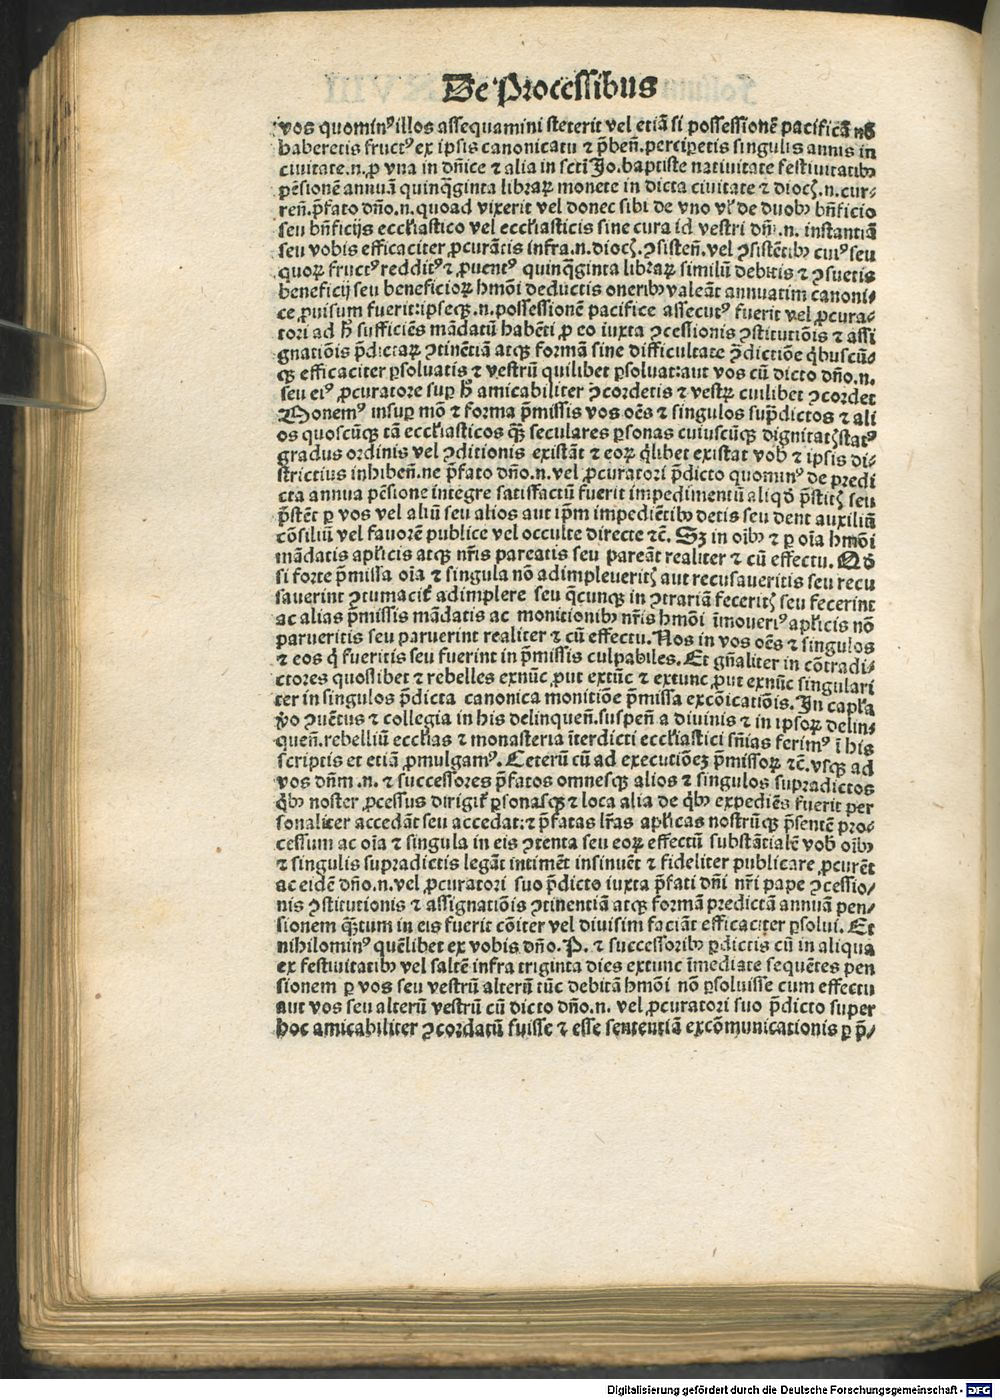 De Processibus
vos quominꝰ illos assequamini steterit vel etiã si possessionẽ pacificã nõ
haberetis fructꝰ ex ipsis canonicatu ⁊ p̃beñ. perciperetis singulis annis in
ciuitate .n. ꝓ vna in dñice ⁊ alia in scti Jo. baptiste natiuitate festiuitatibꝫ
pẽsionẽ annuã quinq̃ginta librarꝝ monete in dicta ciuitate ⁊ dioc̃. n. cur⸗
reñ. p̃fato dño .n. quoad vixerit vel donec sibi de vno vl̓ de duobꝫ bñficio
seu bñficijs eccl̓iastico vel eccl̓iasticis sine cura id vestri dñi .n. instantiã
seu vobis efficaciter ꝓcurãtis infra .n. dioc̃. ꝯsisteñ. vel ꝯsistẽtibꝫ cuiꝰ seu
quorꝝ fructꝰ redditꝰ ⁊ ꝓuentꝰ quinq̃ginta librarꝝ similiũ debitis ⁊ ꝯsuetis
beneficij seu beneficiorꝝ hmõi deductis oneribꝫ valeãt annuatim canoni⸗
ce ꝓuisum fuerit: ipseqꝫ .n. possessionẽ pacifice assecutꝰ fuerit vel ꝓcura⸗
tori ad h̃ sufficiẽs mãdatũ habẽti ꝓ eo iuxta ꝯcessionis ꝯstitutiõis ⁊ assi
gnatiõis p̃dictarꝝ ꝯtinẽtiã atqꝫ formã sine difficultate ꝯ̃dictiõe q̃buscũ⸗
qꝫ efficaciter ꝑsoluatis ⁊ vestrũ quilibet ꝑsoluat: aut vos cũ dicto dño .n.
seu eiꝰ ꝓcuratore suꝑ h̃ amicabiliter ꝯcordetis ⁊ vestrꝝ cuilibet ꝯcordet
Monemꝰ insuꝑ mõ ⁊ forma p̃missis vos oẽs ⁊ singulos sup̃dictos ⁊ ali
os quoscũqꝫ tã eccl̓iasticos q̃ꝫ seculares ꝑsonas cuiuscũqꝫ dignitatꝭ statꝰ
gradus ordinis vel ꝯditionis existãt ⁊ eorꝝ q̃libet existat vob̃ ⁊ ipsis di⸗
strictius inhibeñ. ne p̃fato dño .n. vel ꝓcuratori p̃dicto quominꝰ de predi
cta annua pẽsione integre satisfactũ fuerit impedimentũ aliqd̃ p̃stitꝭ seu
p̃stẽt ꝑ vos vel aliũ seu alios aut ip̃m impediẽtibꝫ detis seu dent auxiliũ
cõsiliũ vel fauorẽ publice vel occulte directe ⁊c̃. Sꝫ in oĩbꝫ ⁊ ꝑ oĩa hmõi
mãdatis apl̓icis atqꝫ nr̃is pareatis seu pareãt realiter ⁊ cũ effectu. Qd̃
si forte p̃missa oĩa ⁊ singula nõ adimpleueritꝭ aut recusaueritis seu recu
sauerint ꝯtumacit̓ adimplere seu q̃cunqꝫ in ꝯtrariã feceritꝭ seu fecerint
ac alias p̃missis mãdatis ac monitionibꝫ nr̃is hmõi ĩmoueriꝰ apl̓icis nõ
parueritis seu paruerint realiter ⁊ cũ effectu. Nos in vos oẽs ⁊ singulos
⁊ eos q̃ fueritis seu fuerint in p̃missis culpabiles. Et gñaliter in cõtradi⸗
ctores quoslibet ⁊ rebelles exnũc ꝓut extũc ⁊ extunc ꝓut exnũc singulari
ter in singulos p̃dicta canonica monitiõe p̃missa excõicatiõis. In capl̓a
ṽo ꝯuẽtus ⁊ collegia in his delinqueñ. suspeñ a diuinis ⁊ in ipsorꝝ delin⸗
queñ. rebelliũ eccl̓ias ⁊ monasteria ĩterdicti eccl̓iastici sñias ferimꝰ ĩ his
scriptis et etiã ꝓmulgamꝰ. Ceterũ cũ ad executiõeꝫ p̃missorꝝ ⁊c̃. vsqꝫ ad
vos dñm .n. ⁊ successores p̃fatos omnesqꝫ alios ⁊ singulos supradictos
q̃bꝫ noster ꝓcessus dirigit̓ ꝑsonasqꝫ ⁊ loca alia de q̃bꝫ expediẽs fuerit per
sonaliter accedãt seu accedat: ⁊ p̃fatas lr̃as apl̓icas nostrũqꝫ p̃sentẽ pro⸗
cessum ac oĩa ⁊ singula in eis ꝯtenta seu eorꝝ effectũ substãtialẽ vob̃ oĩbꝫ
⁊ singulis supradictis legãt intimẽt insinuẽt ⁊ fideliter publicare ꝓcurẽt
ac eidẽ dño .n. vel ꝓcuratori suo p̃dicto iuxta p̃fati dñi nr̃i pape ꝯcessio⸗
nis ꝯstitutionis ⁊ assignatiõis ꝯtinentiã atqꝫ formã predictã annuã pen⸗
sionem q̃ꝫtum in eis fuerit cõiter vel diuisim faciãt efficaciter ꝑsolui. Et
nihilominꝰ quẽlibet ex vobis dño. P. ⁊ successoribꝫ ꝑdictis cũ in aliqua
ex festiuitatibꝫ vel saltẽ infra triginta dies extunc ĩmediate sequẽtes pen
sionem ꝑ vos seu vestrũ alterũ tũc debitã hmõi nõ ꝑsoluisse cum effectu
aut vos seu alterũ vestrũ cũ dicto dño .n. vel ꝓcuratori suo p̃dicto super
hoc amicabiliter ꝯcordatũ fuisse ⁊ esse sententiã excõmunicationis ꝑ p̃⸗
Digitalisierung gefördert durch die Deutsche Forschungsgemeinschaft - DFG